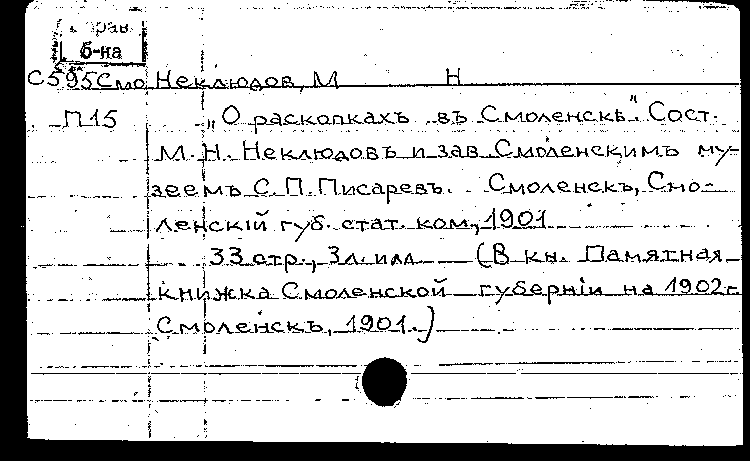 б-на
С595Смо Неклюдов, М Н
П15 „О раскопкахъ въ Смоленскѣ". Сост.
М. Н. Неклюдовъ и зав. Смоленскимъ му-
зеемъ С. П. Писаревъ. Смоленскъ, Смо-
ленскій губ. стат. ком., 1901
33 стр., 3л. илл (В кн. Памятная
книжка Смоленской губерніи на 1902г
Смоленскъ, 1901.)